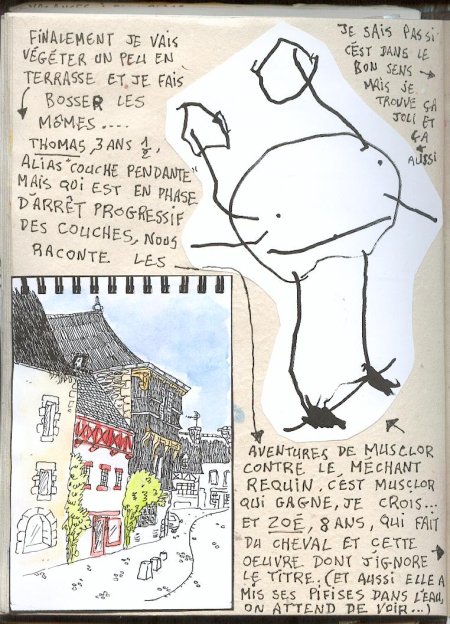 FINALEMENT JE VAIS
VÉGÉTER UN PEU EN
TERRASSE ET JE FAIS
BOSSER LES
MÔMES....
THOMAS, 3 ANS 1/2,
ALIAS "COUCHE PENDANTE"
MAIS QUI EST EN PHASE
D'ARRÊT PROGRESSIF
DES COUCHES, NOUS
RACONTE LES
AVENTURES DE MUSCLOR
CONTRE LE MÉCHANT
REQUIN. C'EST MUSCLOR
QUI GAGNE, JE CROIS...
ET ZOÉ, 8 ANS, QUI FAIT
DU CHEVAL ET CETTE
OEUVRE DONT J'IGNORE
LE TITRE. (ET AUSSI ELLE A
MIS SES PIEISES DANS L'EAU,
ON ATTEND DE VOIR...)
JE SAIS PAS SI
C'EST DANS LE
BON SENS
MAIS JE
TROUVE ÇA
JOLI ET
ÇA
AUSSI